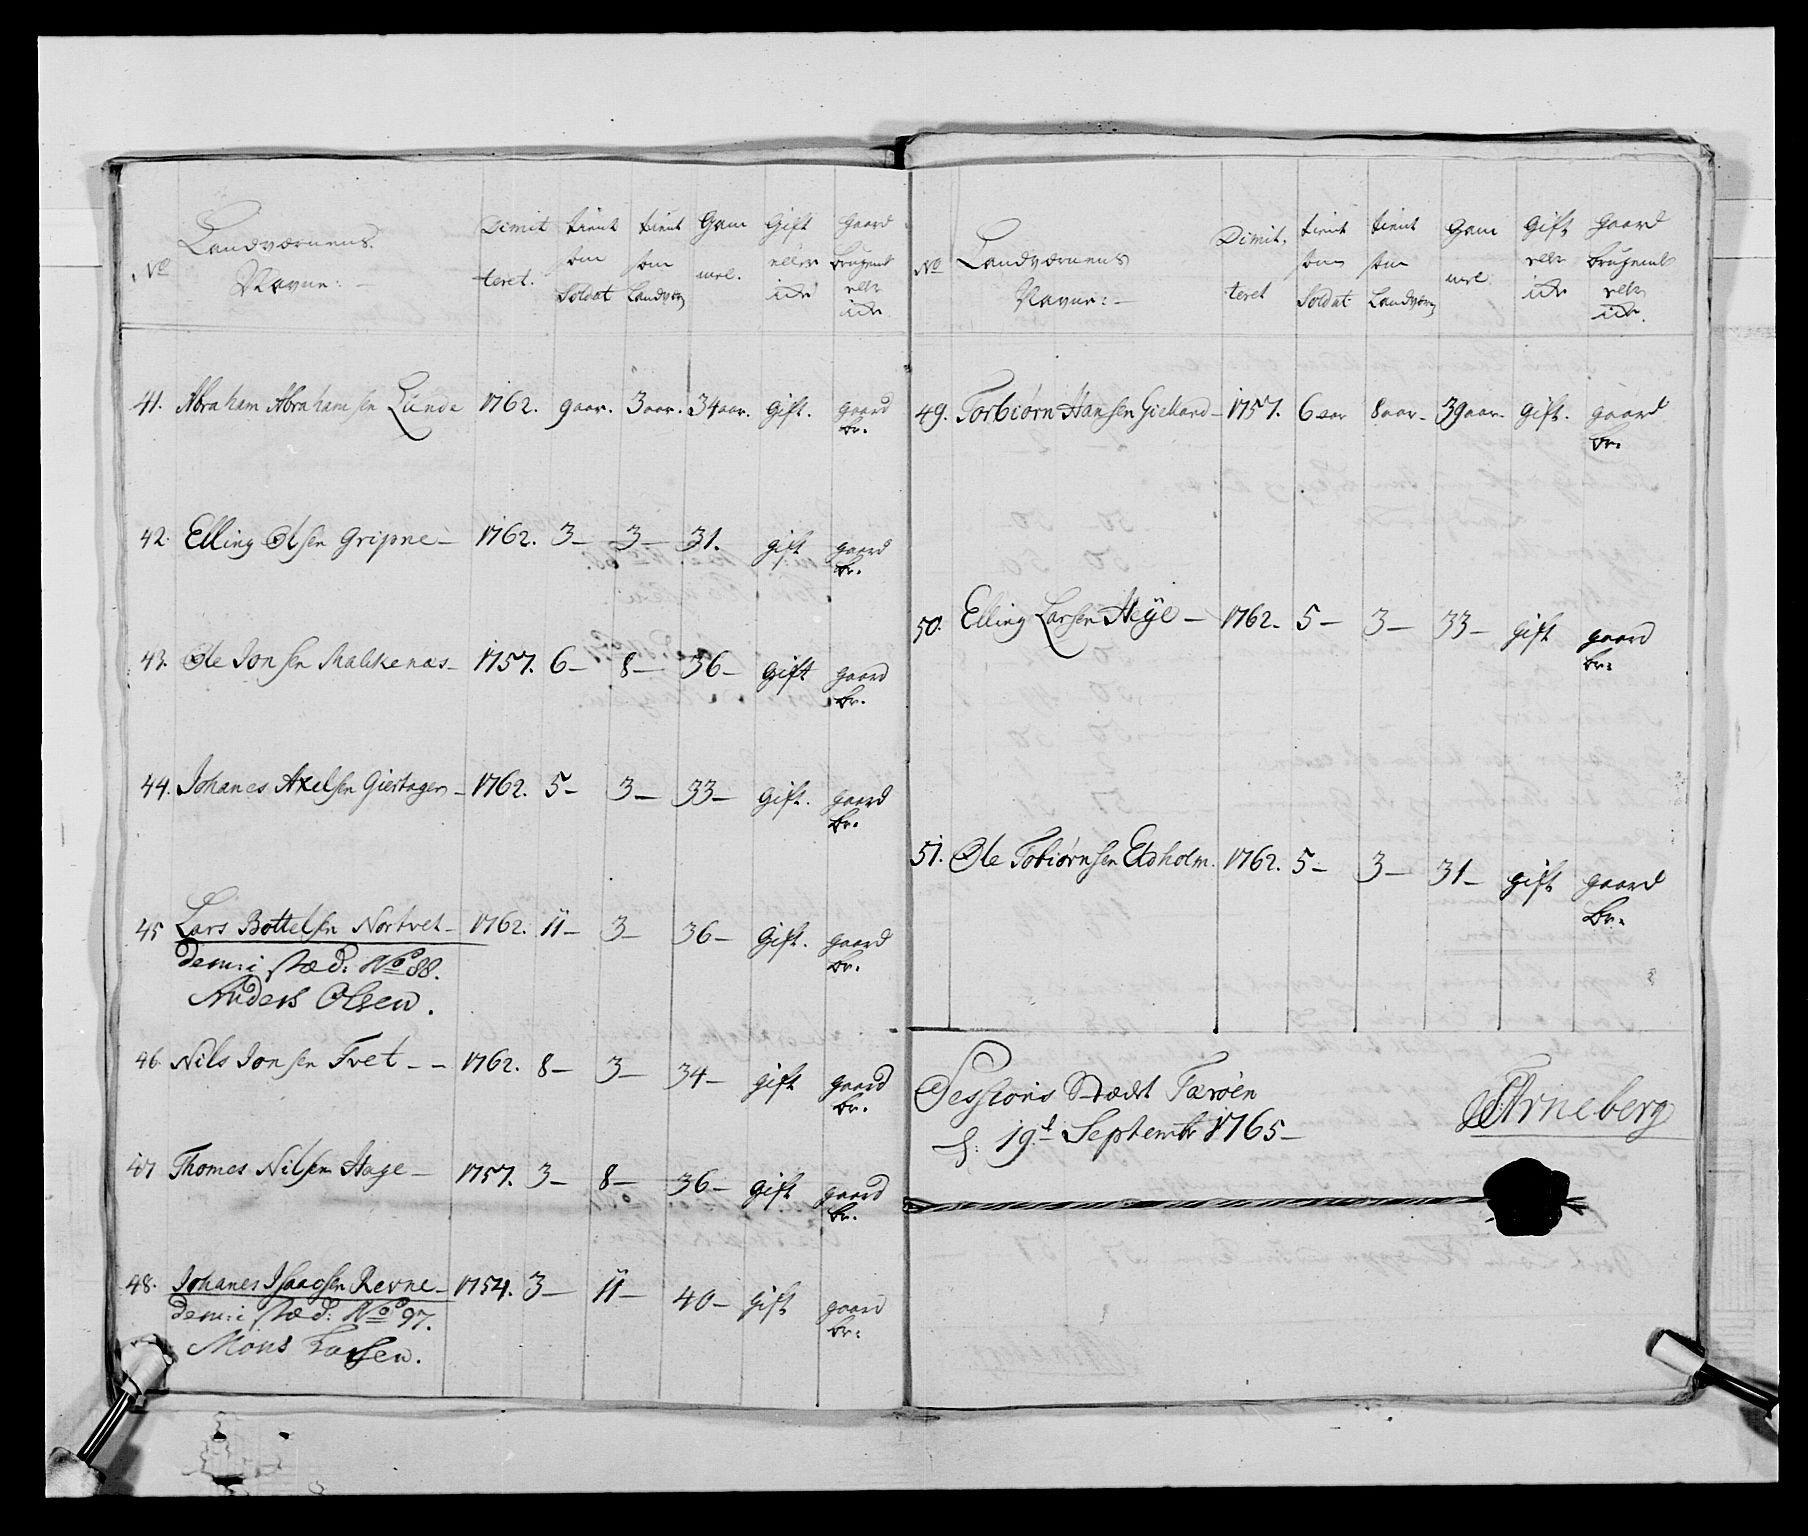 No Landværnens Navne:— Dimitteret. tient som Soldat tient som Landværn Gammel. Gift eller icke gaard brugende eller icke
41. Abraham Abrahamsen Lunde 1762. 9 aar. 3 aar. 34 aar. gift. gaard br.
42. Elling Olsen Gripne— 1762. 3— 3— 31. gift gaard br.
43. Ole Jonsen Malkenæs— 1757. 6— 8— 36— gift gaard br.
44. Johanes Axelsen Giertager— 1762. 5— 3— 33— Gift. gaard br.
45 Lars Bottelsen Nortvet— 1762. 11— 3— 36— Gift. gaard br.
dem: i stæd: No 88.
Anders Olsen.
46. Nils Jonsen Tvet—— 1762. 8— 3— 34— gift gaard br.
47 Thomes Nilsen Hage— 1757. 3— 8— 36— gift gaard br.
48. Johanes Isaagsen Revne— 1754. 3— 11— 40— gift gaard br:
dem: i stæd: No 97.
Mons Larsen.
No Landværnens Navne:— Dimitteret tient som Soldat tient som Landværn Gammel Gift elle icke gaard brugende elle icke.
49. Torbiørn Hansen Giellard— 1757. 6 aar 8 aar. 39 aar. gift. gaard br.
50. Elling Larsen Heÿe— 1762. 5— 3— 33— gift gaard br:
51. Ole Tobiørnsen Eidholm. 1762. 5— 3— 31— gift gaard br.
Sessions Stædet Tærøen
d: 19d Septembr 1765—
Arneberg